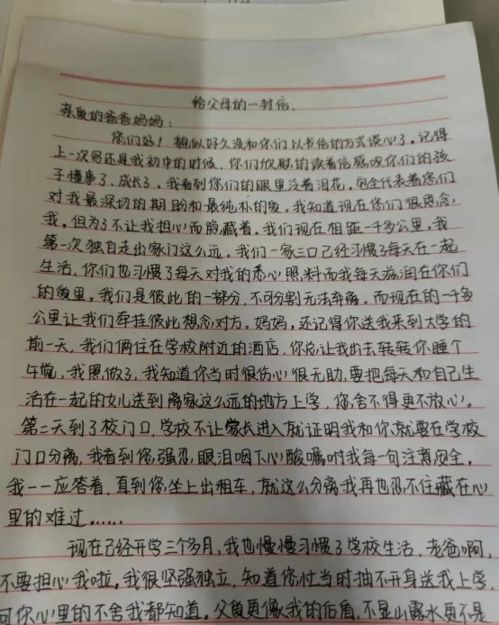 给父母的一封信.
亲爱的爸爸妈妈:
你们好!貌似好久没和你们以书信的方式谈心了,记得
上一次写还是我初中的时候,你们欣慰的读着信感叹你们的孩
子懂事了、成长了,我看到你们的眼里泛着泪花,完全代表着你们
对我最深切的期盼和最纯朴的爱,我知道现在你们很思念
我,但为了不让我担心而隐藏着,我们现在相距一千多公里,我
第一次独自走出家门这么远,我们一家三口已经习惯了每天在一起
生活,你们也习惯了每天对我的悉心照料而我每天滋润在你们
的爱里,我们是彼此的一部分,不可分割无法牵离,而现在的一千多
公里让我们牵挂彼此想念对方,妈妈,还记得你送我来到大学的
前一天,我们俩住在学校附近的酒店,你总让我出去转转你睡个
午觉,我照做了,我知道你当时很伤心很无助,要把每天和自己生
活在一起的女儿送到离家这么远的地方上学,你舍不得更不放心。
第二天到了校门口,学校不让家长进入就证明我和你就要在学校
门口分离,我看到你强忍眼泪咽下心酸嘱咐我每一句注意安全,
我一一应答着,直到你坐上出租车,就这么分离我再也忍不住藏在心
里的难过……
现在已经开学三个月,我也慢慢习惯了学校生活,老爸啊,
不要担心我啦,我很坚强独立,知道你忙当时抽不开身送我上学,
可你心里的不舍我都知道,父爱更像我的后盾,不显山露水更不是